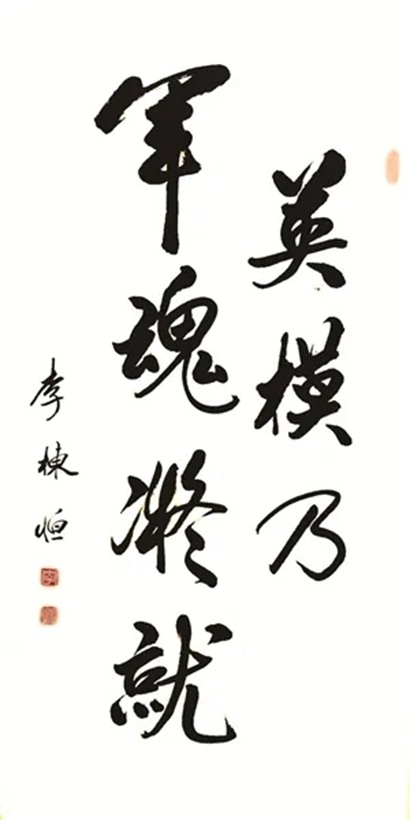 英模乃
军魂凝就
李栋恒